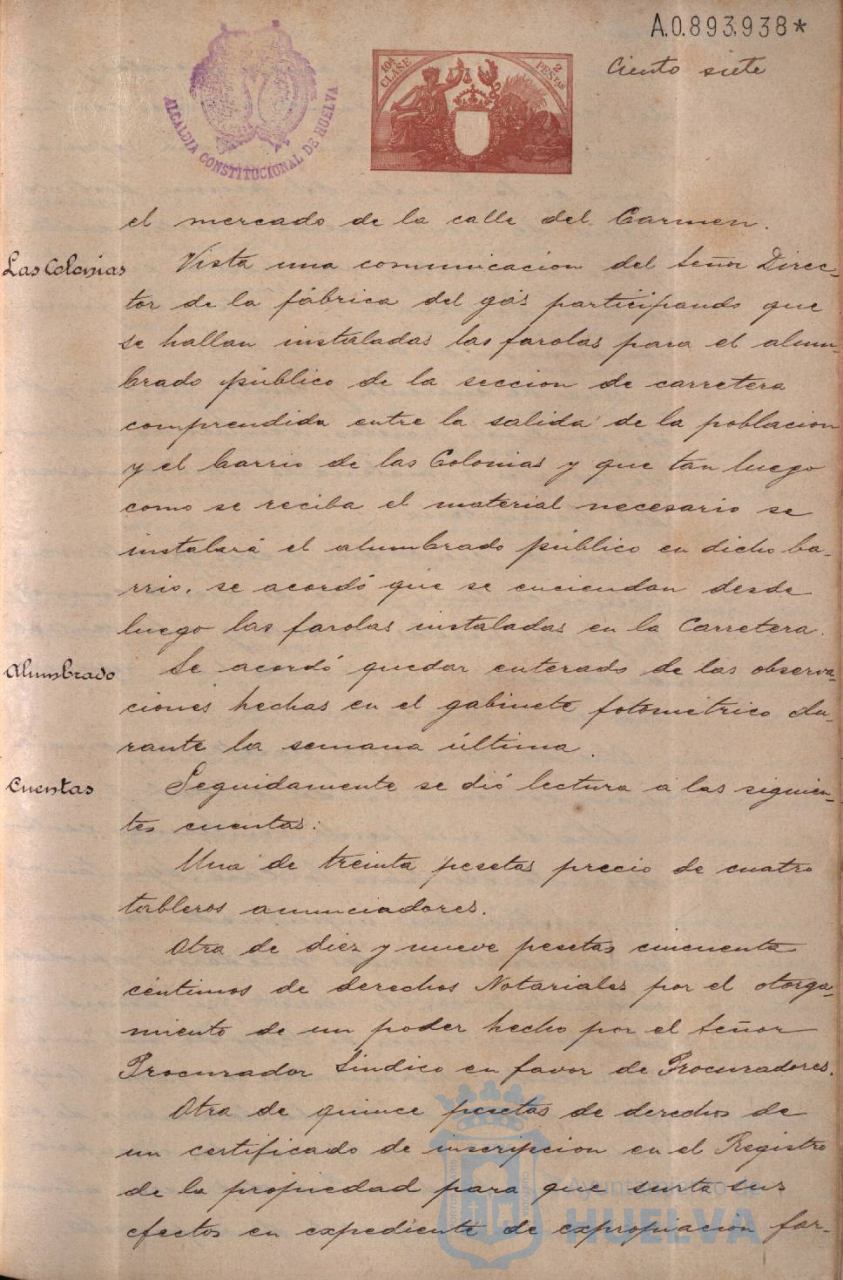 A.0.893,938*
10ª CLASE
2 PESETAS
Ciento siete
ALCALDIA CONSTITUCIONAL DE HUELVA
el mercado de la calle del Carmen.
Las Colonias
Vista una comunicacion del Señor Direc-
tor de la fábrica del gás participando que
se hallan instaladas las farolas para el alum-
brado público de la seccion de carretera
comprendida entre la salida de la poblacion
y el barrio de las Colonias y que tan luego
como se reciba el material necesario se
instalará el alumbrado público en dicho ba-
rrio, se acordó que se enciendan desde
luego las farolas instaladas en la Carretera.
Alumbrado
Se acordó quedar enterado de las observa-
ciones hechas en el gabinete fotométrico du-
rante la semana última.
Cuentas
Seguidamente se dió lectura á las siguien-
tes cuentas:
Una de treinta pesetas precio de cuatro
tableros anunciadores.
Otra de diez y nueve pesetas cincuenta
céntimos de derechos Notariales por el otorga-
miento de un poder hecho por el Señor
Procurador Síndico en favor de Procuradores.
Otra de quince pesetas de derechos de
un certificado de inscripcion en el Registro
de la propiedad para que surta sus
efectos en expediente de expropiacion for-
Ayuntamiento de
HUELVA